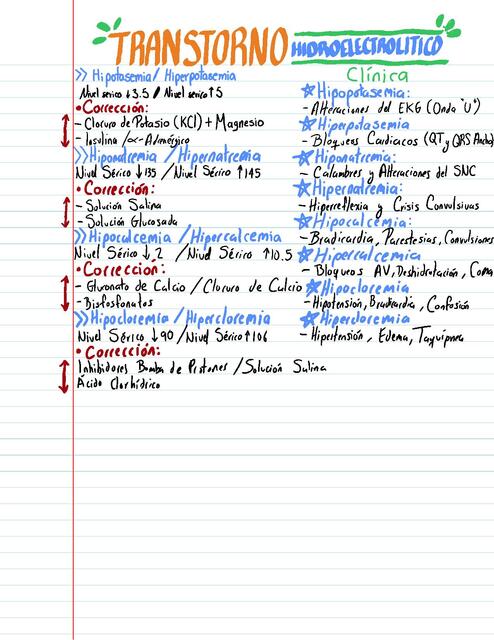 TRANSTORNO HIDROELECTROLITICO
>> Hipotasemia/ Hiperpotasemia
Nivel serico ↓3.5 / Nivel serico ↑5
• Corrección:
- Cloruro de Potasio (KCl) + Magnesio
- Insulina /α-Adrenérgico
>> Hiponatremia / Hipernatremia
Nivel Sérico ↓135 / Nivel Sérico ↑145
• Corrección:
- Solución Salina
- Solución Glucosada
>> Hipocalcemia / Hipercalcemia
Nivel Sérico ↓,2 / Nivel Sérico ↑10.5
• Corrección:
- Gluronato de Calcio / Cloruro de Calcio
- Bisfosfonatos
>> Hipocloremia / Hipercloremia
Nivel Sérico ↓90 / Nivel Sérico ↑106
• Corrección:
Inhibidores Bomba de Protones / Solución Salina
Ácido Clorhídrico
Clínica
☆ Hipopotasemia:
- Alteraciones del EKG (Onda "U")
☆ Hiperpotasemia
- Bloqueos Cardiacos (QT y QRS Ancho)
☆ Hiponatremia:
- Calambres y Alteraciones del SNC
☆ Hipernatremia:
- Hiperreflexia y Crisis Convulsivas
☆ Hipocalcemia:
- Bradicardia, Parestesias, Convulsiones
☆ Hipercalcemia
- Bloqueos AV, Deshidratación, Coma
☆ Hipocloremia
- Hipotensión, Bradicardia, Confusión
☆ Hipercloremia
- Hipertensión, Edema, Taquipnea